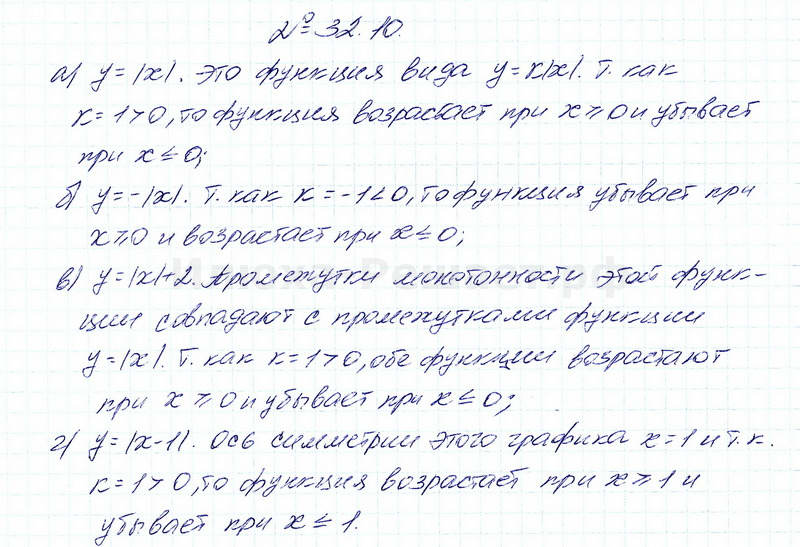 № 32.10.
а) y = |x|. Это функция вида y = k|x|. Т. как
k = 1 > 0, то функция возрастает при x ≥ 0 и убывает
при x ≤ 0;
б) y = -|x|. Т. как k = -1 < 0, то функция убывает при
x ≥ 0 и возрастает при x ≤ 0;
в) y = |x| + 2. Промежутки монотонности этой функ-
ции совпадают с промежутками функции
y = |x|. Т. как k = 1 > 0, обе функции возрастают
при x ≥ 0 и убывает при x ≤ 0;
г) y = |x-1|. Ось симметрии этого графика x = 1 и т. к.
k = 1 > 0, то функция возрастает при x ≥ 1 и
убывает при x ≤ 1.